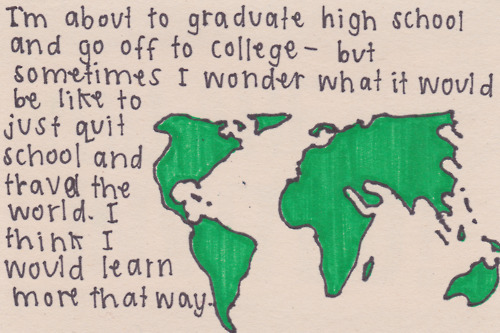 I'm about to graduate high school
and go off to college - but
sometimes I wonder what it would
be like to
just quit
school and
travel the
world. I
think I
would learn
more that way.